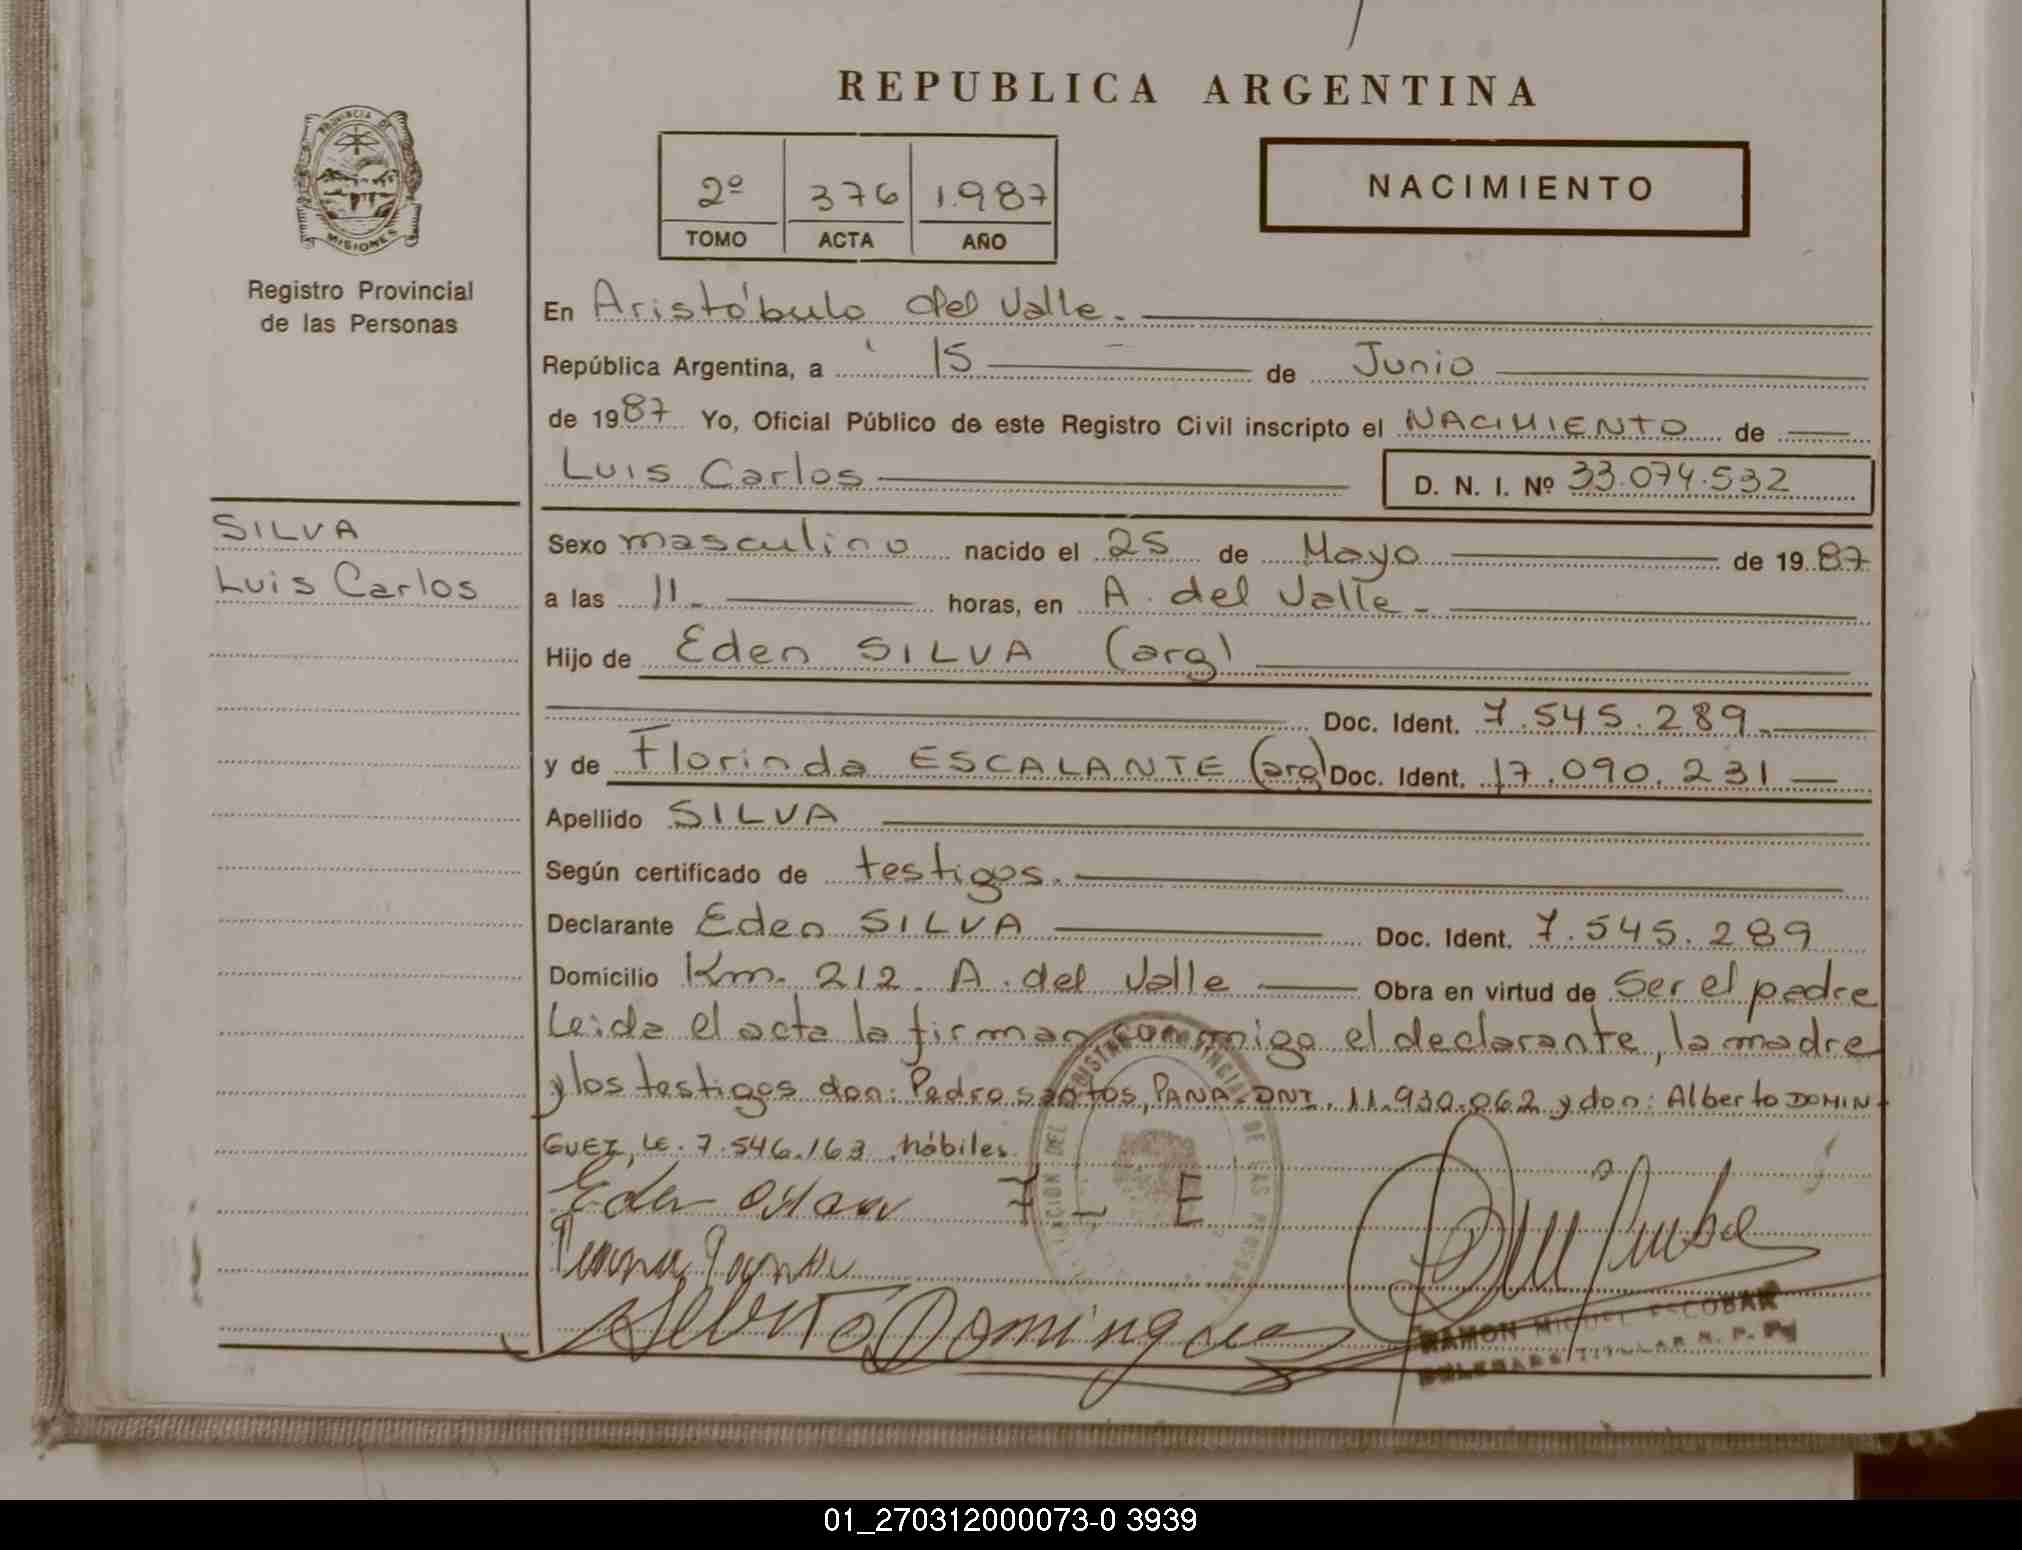 REPUBLICA ARGENTINA
PROVINCIA DE
MISIONES
Registro Provincial
de las Personas
2º 376 1.987
TOMO ACTA AÑO
NACIMIENTO
En Aristóbulo del Valle.
República Argentina, a 15 de Junio
de 1987 Yo, Oficial Público de este Registro Civil inscripto el NACIMIENTO de
Luis Carlos D. N. I. Nº 33.074.532
SILVA
Luis Carlos
Sexo masculino nacido el 25 de Mayo de 1987
a las 11. horas, en A. del Valle.
Hijo de Eden SILVA (arg)
Doc. Ident. 7.545.289
y de Florinda ESCALANTE (arg) Doc. Ident. 17.090.231
Apellido SILVA
Según certificado de testigos.
Declarante Eden SILVA Doc. Ident. 7.545.289
Domicilio Km. 212 A. del Valle Obra en virtud de Ser el padre
Leida el acta la firman conmigo el declarante, la madre
y los testigos don: Pedro santos, PANA DNI. 11.930.062 y don: Alberto DOMIN-
GUEZ, LE. 7.546.163 hábiles.
Eden
F L E
Alberto Domingues
RAMON MIGUEL ESCOBAR
DELEGADO TITULAR R. P. P.
01_270312000073-0 3939